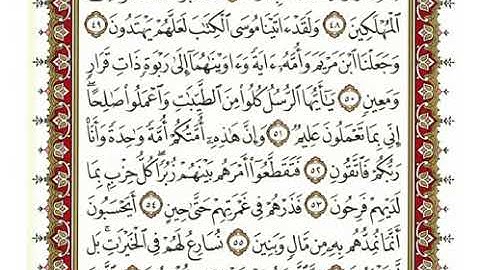 ٱلْمُهْلَكِينَ ۝٤٨ وَلَقَدْ ءَاتَيْنَا مُوسَى ٱلْكِتَٰبَ لَعَلَّهُمْ يَهْتَدُونَ ۝٤٩
وَجَعَلْنَا ٱبْنَ مَرْيَمَ وَأُمَّهُۥٓ ءَايَةً وَءَاوَيْنَٰهُمَآ إِلَىٰ رَبْوَةٍ ذَاتِ قَرَارٍ
وَمَعِينٍ ۝٥٠ يَٰٓأَيُّهَا ٱلرُّسُلُ كُلُوا۟ مِنَ ٱلطَّيِّبَٰتِ وَٱعْمَلُوا۟ صَٰلِحًا
إِنِّى بِمَا تَعْمَلُونَ عَلِيمٌ ۝٥١ وَإِنَّ هَٰذِهِۦٓ أُمَّتُكُمْ أُمَّةً وَٰحِدَةً وَأَنَا۠
رَبُّكُمْ فَٱتَّقُونِ ۝٥٢ فَتَقَطَّعُوٓا۟ أَمْرَهُم بَيْنَهُمْ زُبُرًا كُلُّ حِزْبٍۭ بِمَا
لَدَيْهِمْ فَرِحُونَ ۝٥٣ فَذَرْهُمْ فِى غَمْرَتِهِمْ حَتَّىٰ حِينٍ ۝٥٤ أَيَحْسَبُونَ
أَنَّمَا نُمِدُّهُم بِهِۦ مِن مَّالٍ وَبَنِينَ ۝٥٥ نُسَارِعُ لَهُمْ فِى ٱلْخَيْرَٰتِ بَل